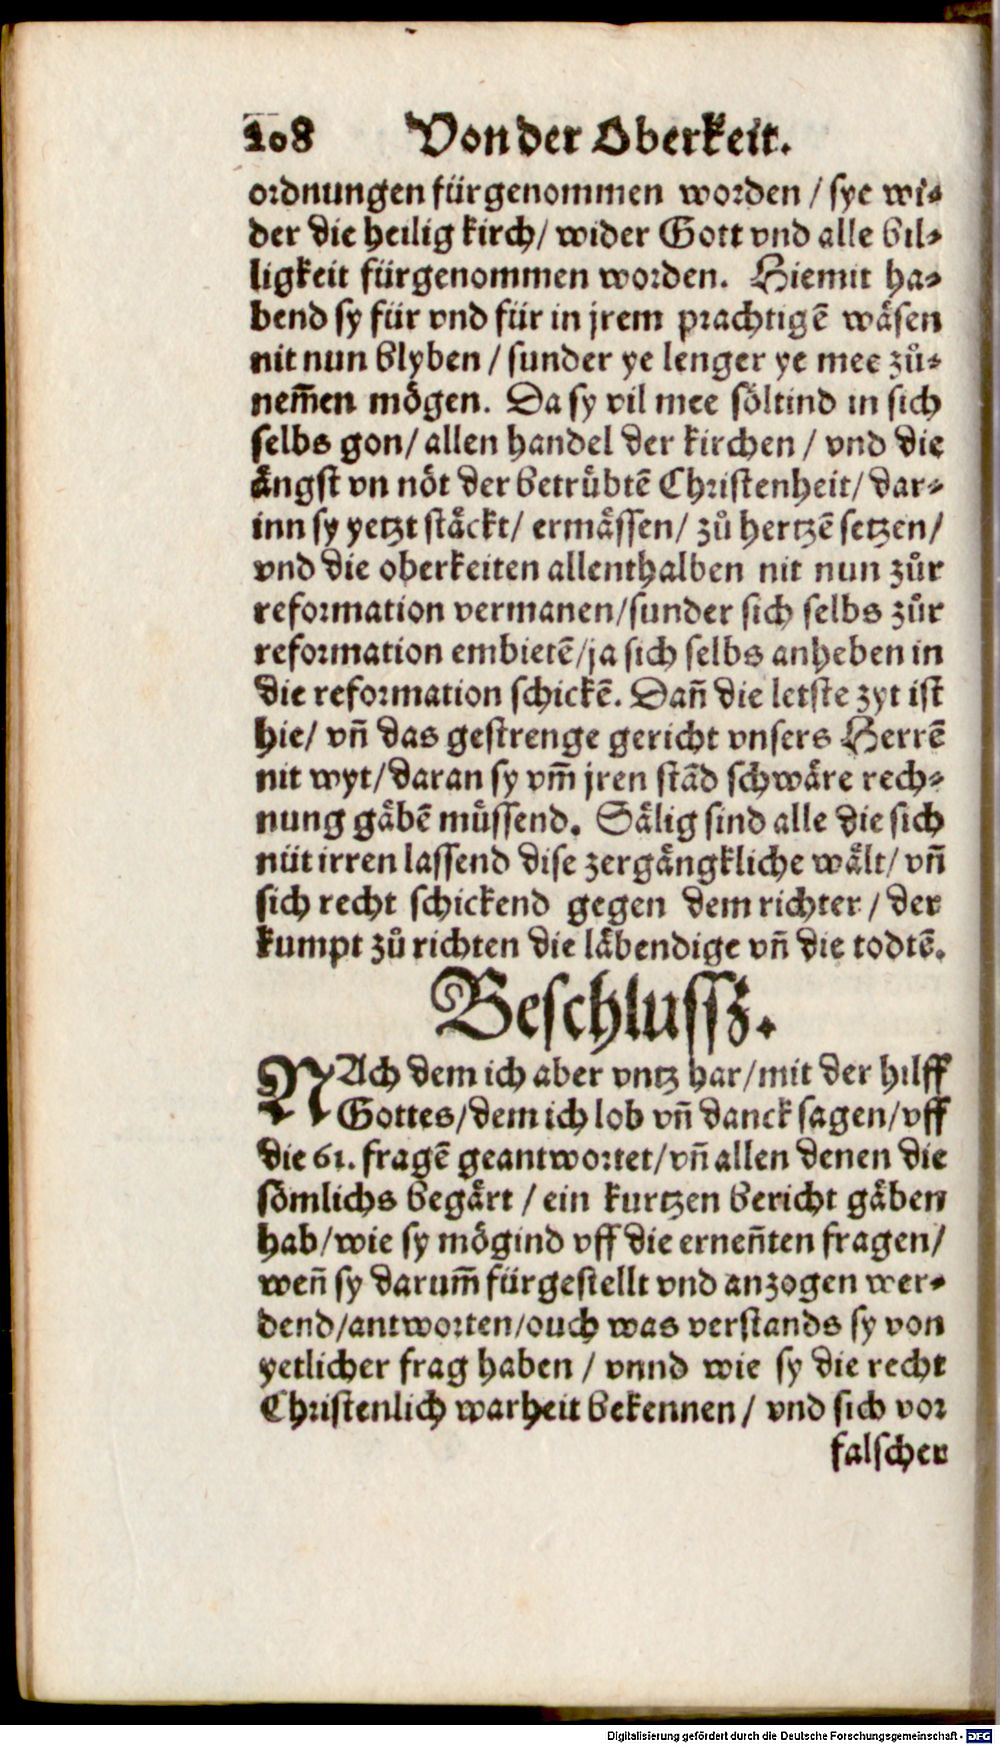 208 Von der Oberkeit.
ordnungen fürgenommen worden / sye wi-
der die heilig kirch/ wider Gott vnd alle bil-
ligkeit fürgenommen worden. Hiemit ha-
bend sy für vnd für in jrem prachtigē wäsen
nit nun blyben / sunder ye lenger ye mee zů-
nem̄en mögen. Da sy vil mee söltind in sich
selbs gon/ allen handel der kirchen / vnd die
ängst vn nöt der betrübtē Christenheit/ dar-
inn sy yetzt stäckt/ ermässen/ zů hertzē setzen/
vnd die oberkeiten allenthalben nit nun zůr
reformation vermanen/sunder sich selbs zůr
reformation embietē/ja sich selbs anheben in
die reformation schickē. Dan̄ die letste zyt ist
hie/ vn̄ das gestrenge gericht vnsers Herrē
nit wyt/daran sy vm̄ jren stād schwäre rech-
nung gäbē müssend. Sälig sind alle die sich
nüt irren lassend dise zergängkliche wält/ vn̄
sich recht schickend gegen dem richter / der
kumpt zů richten die läbendige vn̄ die todtē.
Beschlussz.
NAch dem ich aber vntz har/mit der hilff
Gottes/dem ich lob vn̄ danck sagen/vff
die 61. fragē geantwortet/vn̄ allen denen die
sömlichs begärt / ein kurtzen bericht gäben
hab/wie sy mögind vff die ernen̄ten fragen/
wen̄ sy darum̄ fürgestellt vnd anzogen wer-
dend/antworten/ouch was verstands sy von
yetlicher frag haben / vnnd wie sy die recht
Christenlich warheit bekennen / vnd sich vor
falscher
Digitalisierung gefördert durch die Deutsche Forschungsgemeinschaft - DFG